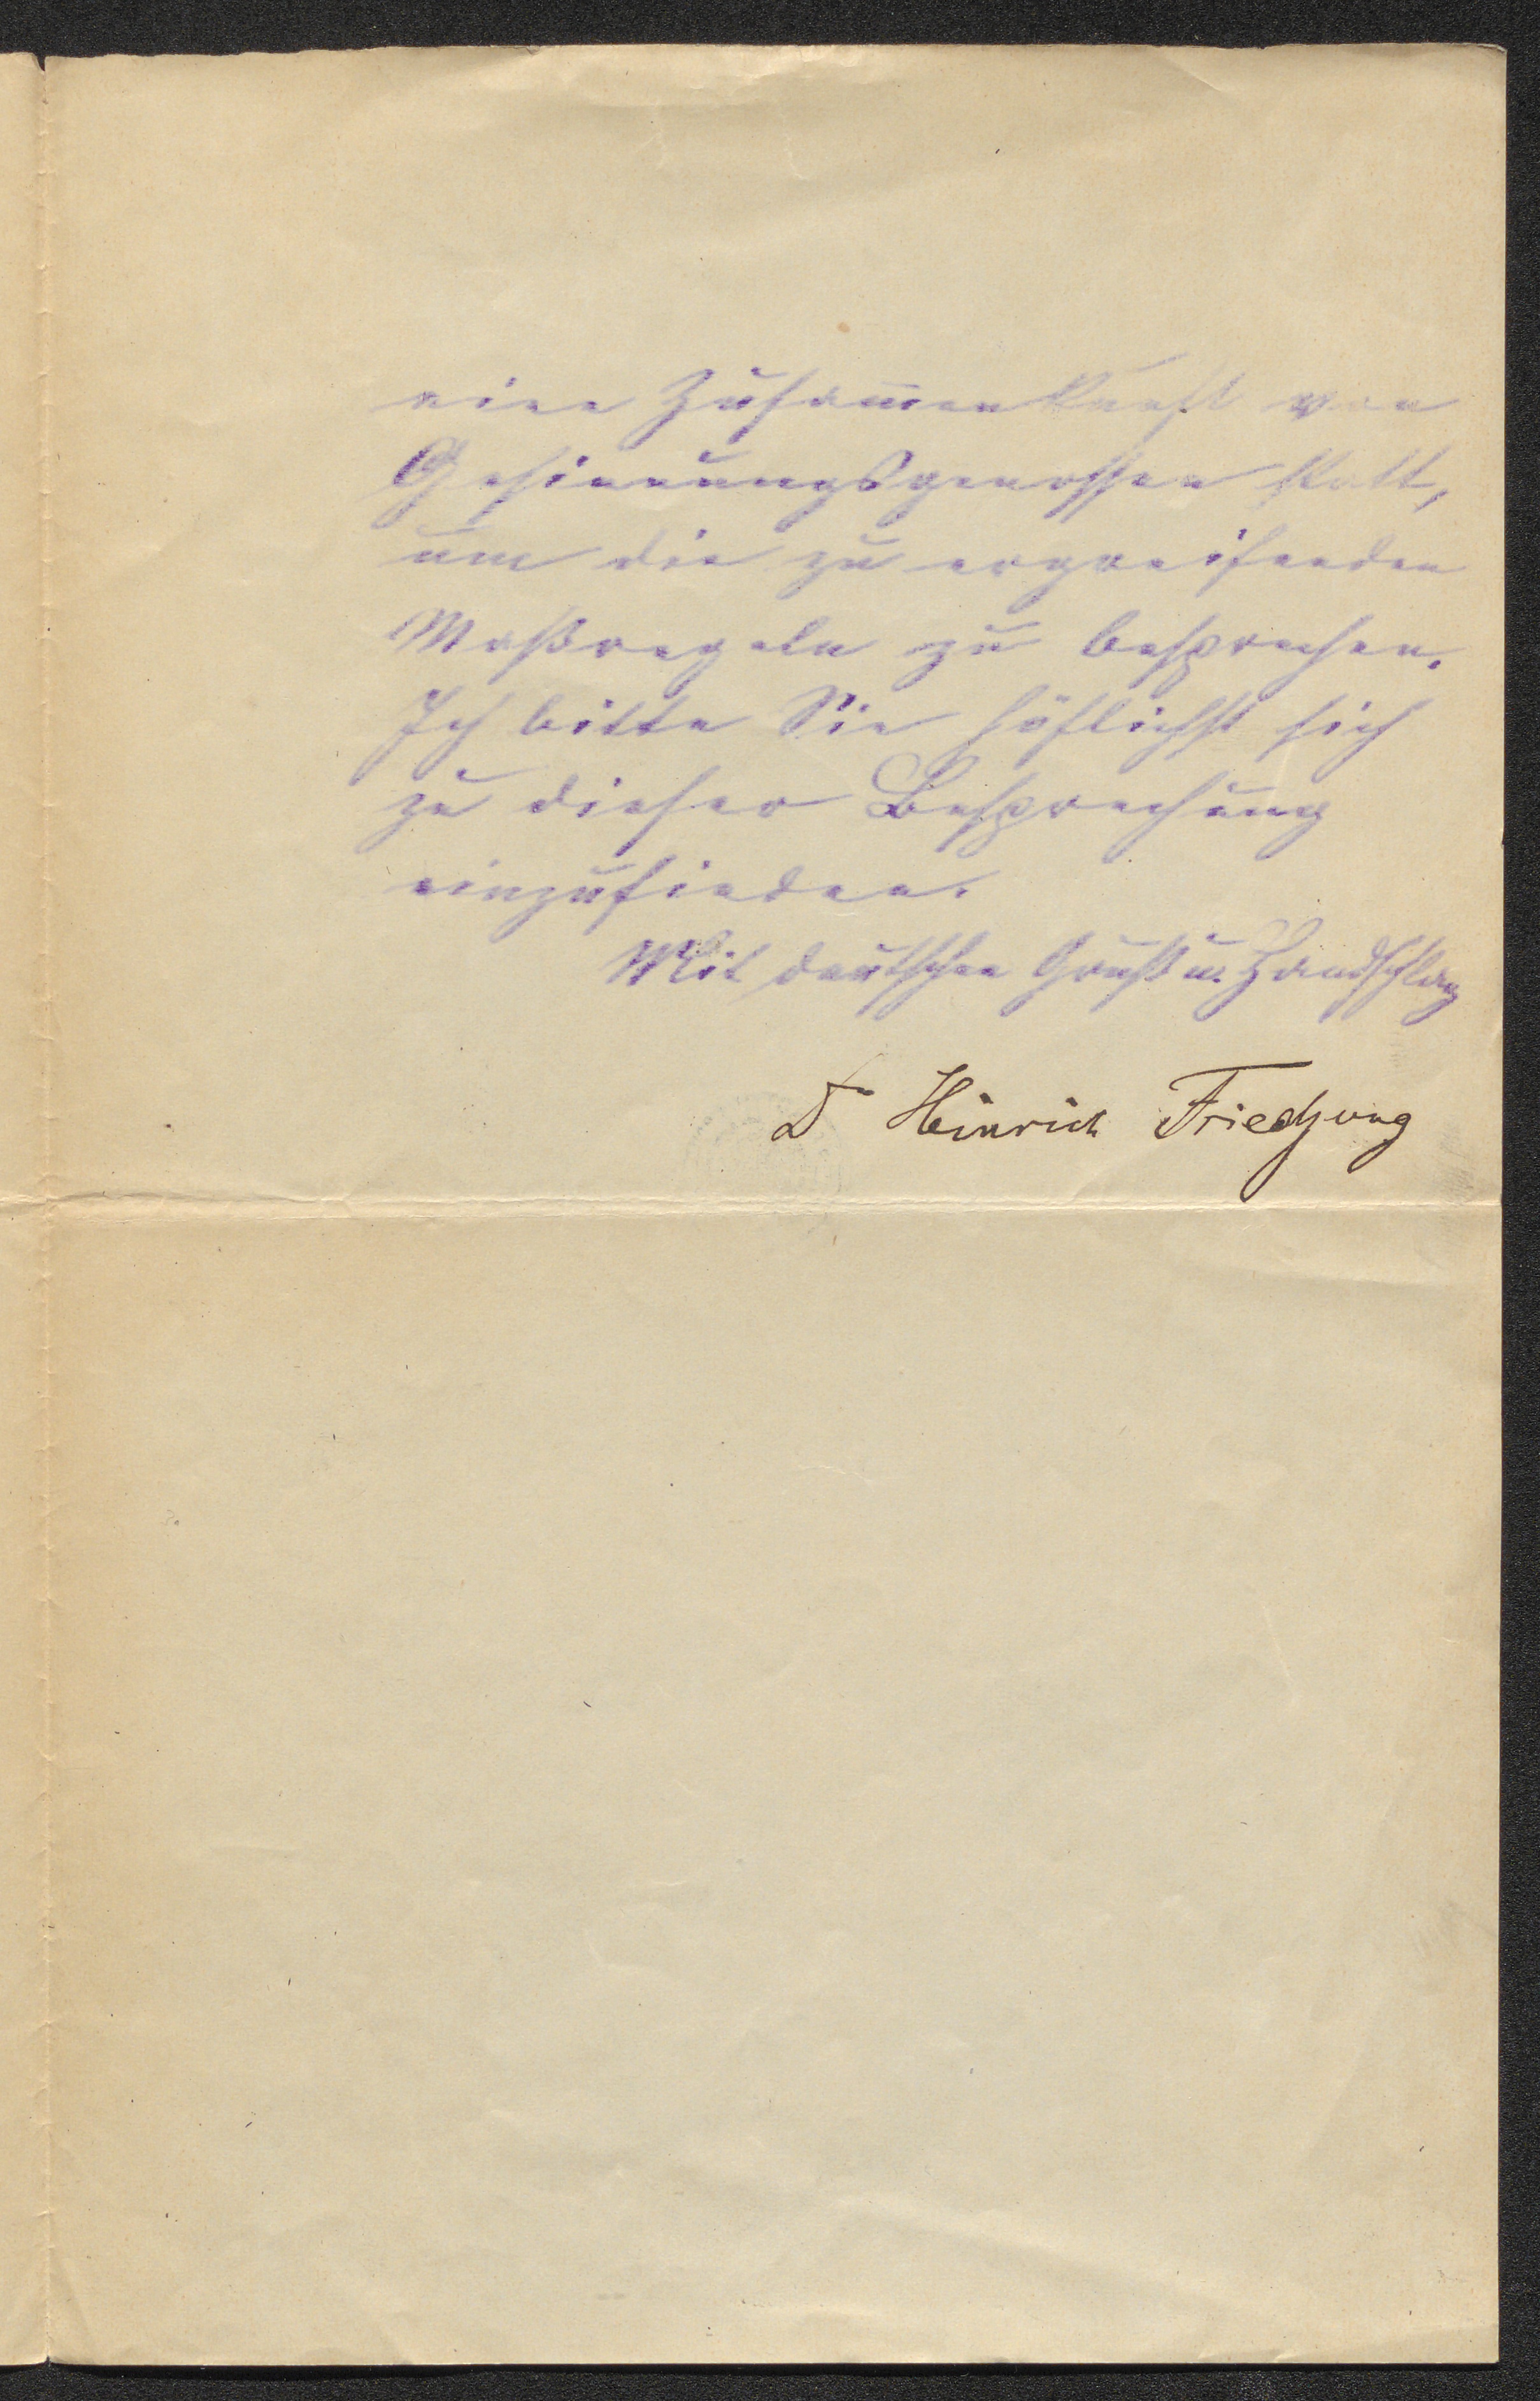 eine Zusam̅enkunft von
Gesinnungsgenossen statt,
um die zu ergreifenden
Maßregeln zu besprechen.
Ich bitte Sie höflichst sich
zu dieser Besprechung
einzufinden.
Mit deutschen Gruß u. Handschlag
Dr Heinrich Friedjung